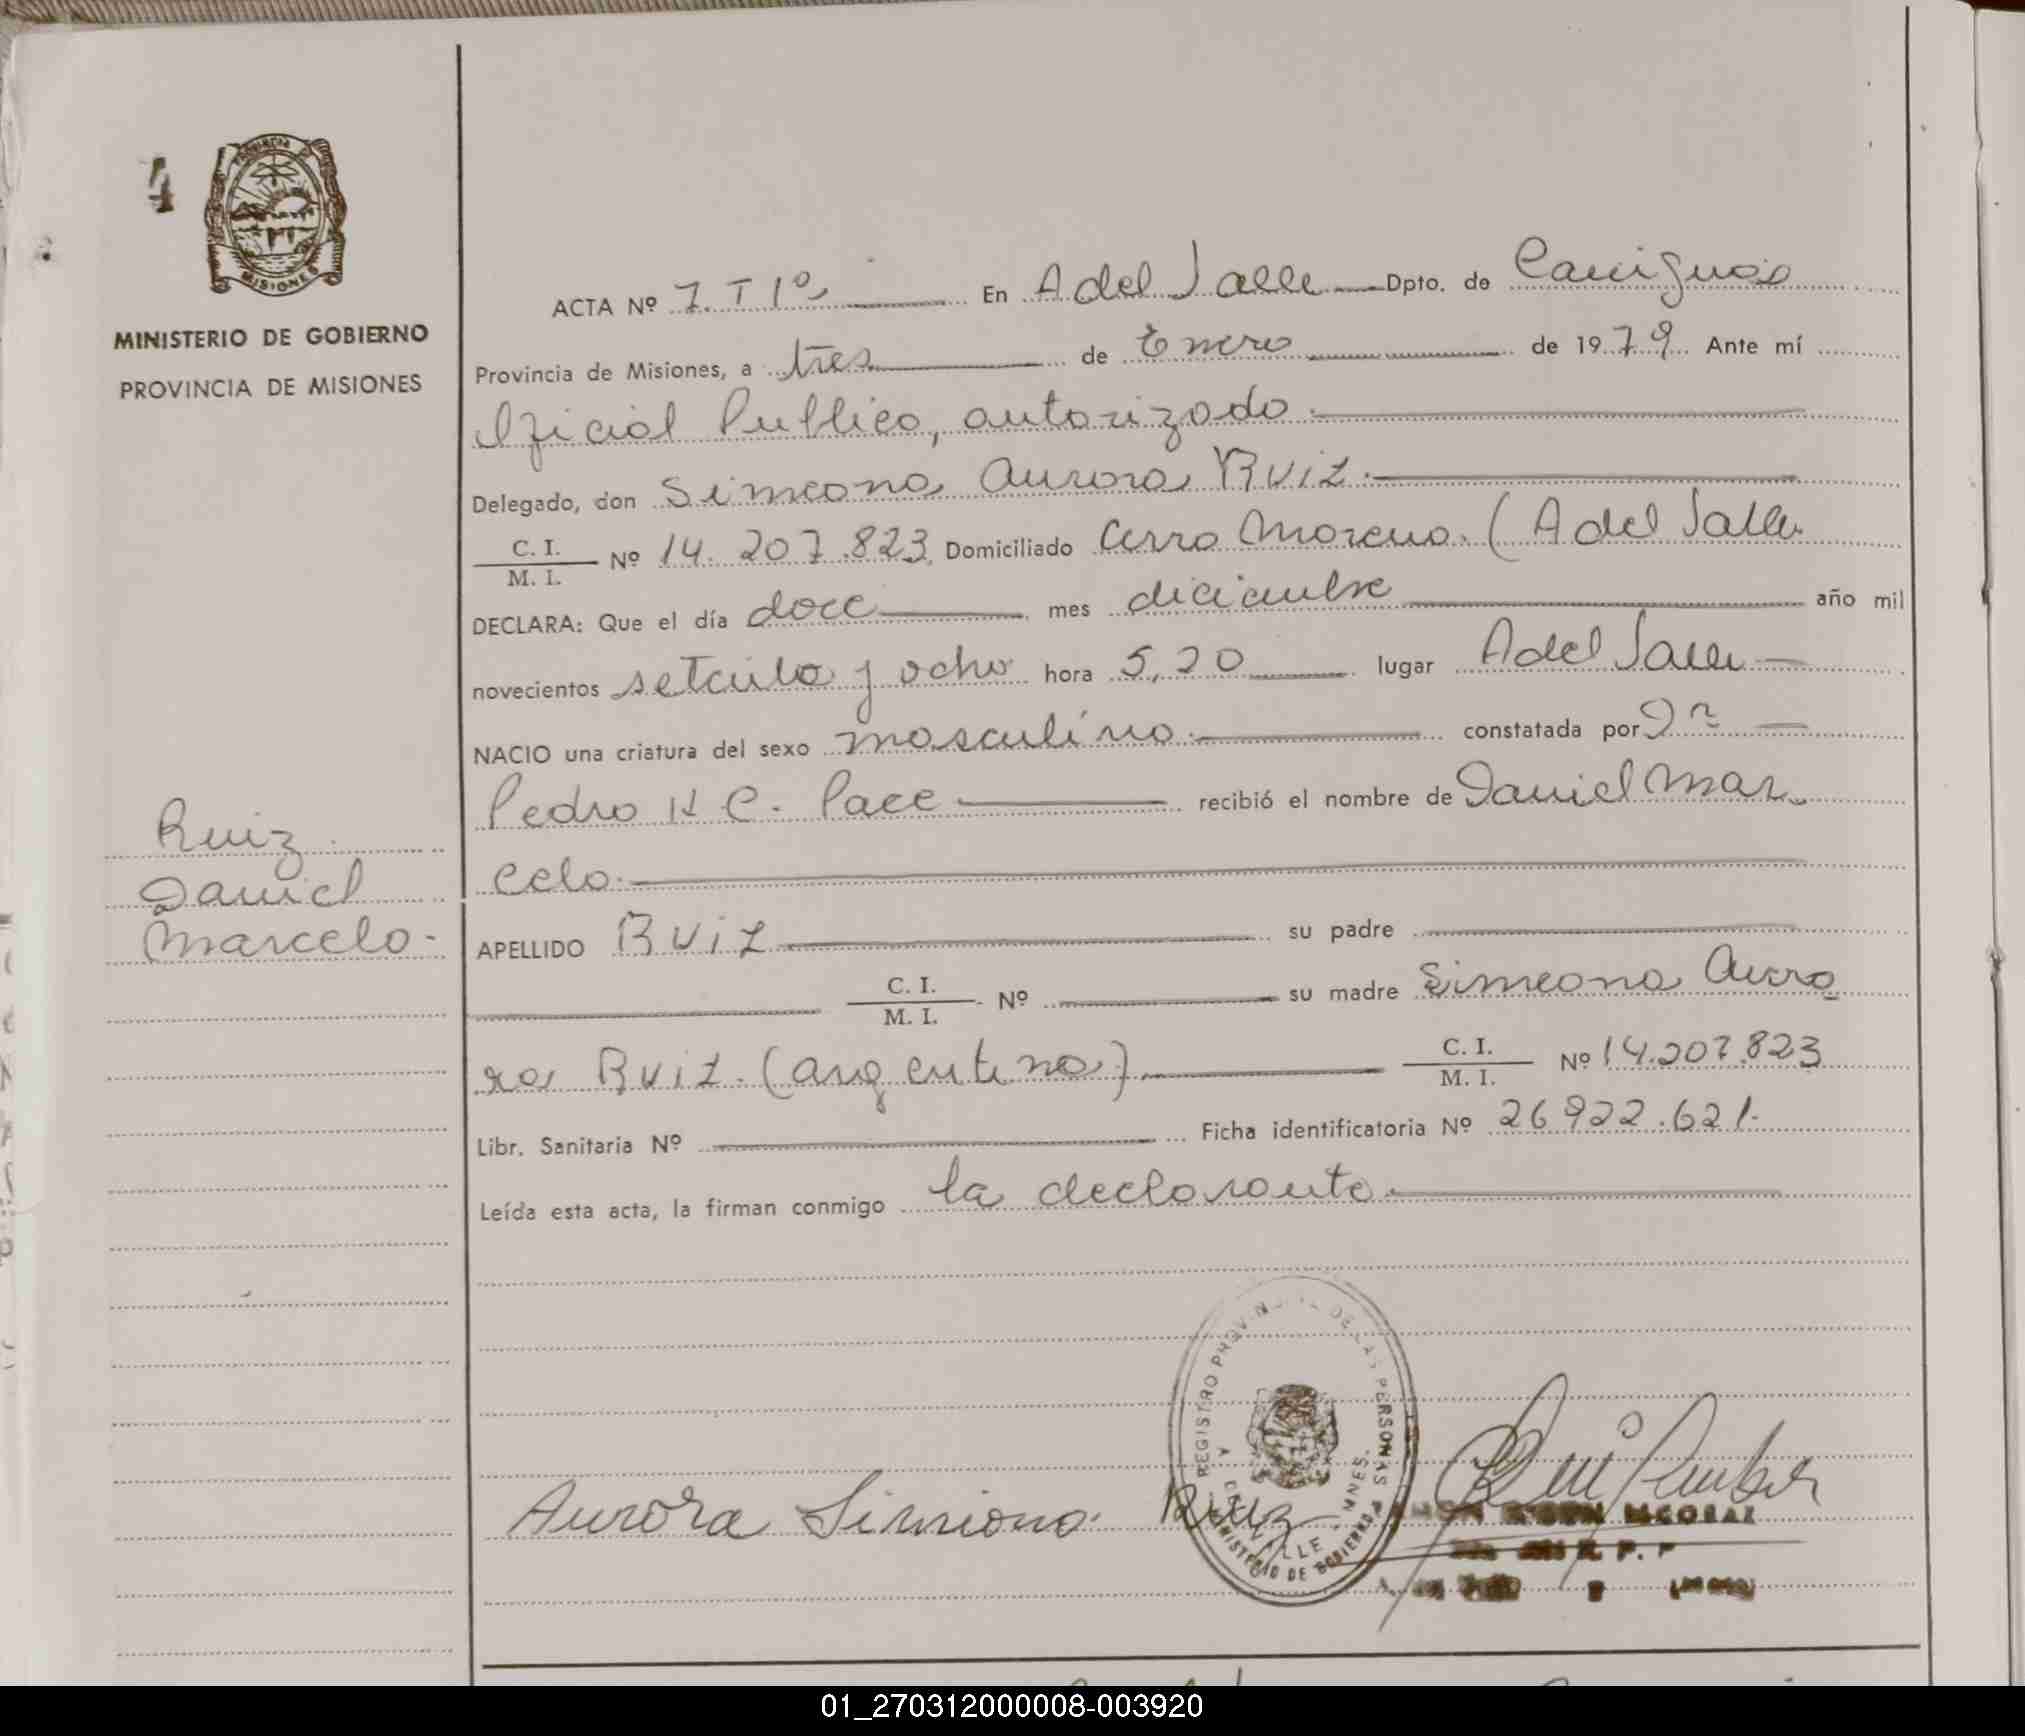 4
PROVINCIA DE
MISIONES
MINISTERIO DE GOBIERNO
PROVINCIA DE MISIONES
Ruiz
Daniel
Marcelo.
ACTA Nº 7. T Iº En A del Valle Dpto. de Cainguás
Provincia de Misiones, a tres de Enero de 1979 Ante mí
Oficial Publico, autorizado
Delegado, don Simeona Aurora Ruiz.
C. I.
M. I. Nº 14.207.823 Domiciliado Cerro Moreno. (A del Valle
DECLARA: Que el día doce mes diciembre año mil
novecientos setenta y ocho hora 5,20 lugar A del Valle
NACIO una criatura del sexo masculino. constatada por Dr
Pedro H C. Pace recibió el nombre de Daniel Mar
celo.
APELLIDO Ruiz su padre
C. I.
M. I. Nº su madre Simeona Auro
ra Ruiz. (argentina) C. I.
M. I. Nº 14.207.823
Libr. Sanitaria Nº Ficha identificatoria Nº 26922.621.
Leída esta acta, la firman conmigo la declarante.
REGISTRO PROVINCIAL DE LAS PERSONAS
MINISTERIO DE GOBIERNO
A DEL VALLE MNES.
Aurora Simiona Ruiz
R. P. P
01_270312000008-003920